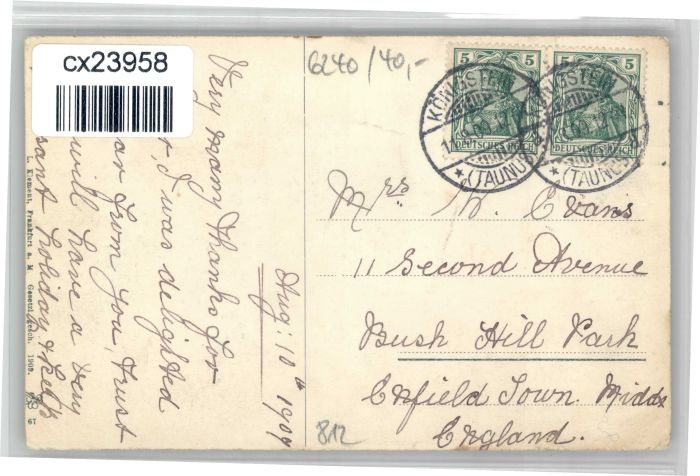 cx23958
6240/40,-
5 5
DEUTSCHES REICH
5 5
DEUTSCHES REICH
KÖNIGSTEIN
(TAUNUS)
KÖNIGSTEIN
(TAUNUS)
Aug: 10th 1909
Very many thanks for
r, I was delighted
ar from you, trust
will have a very
sant holiday & keep
L. Klement, Frankfurt a. M Gesetzl. gesch. 1909.
67
Mrs W. Evans
11 Second Avenue
Bush Hill Park
Enfield Town. Middx
England.
812